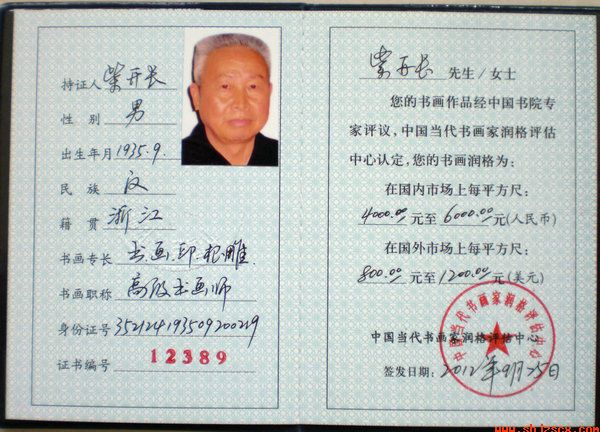 持证人 柴开长
性 别 男
出生年月 1935.9.
民 族 汉
籍 贯 浙江
书画专长 书画.印.根雕.
书画职称 高级书画师
身份证号 352124193509200219
证书编号 12389
柴开长 先生/女士
您的书画作品经中国书院专
家评议，中国当代书画家润格评估
中心认定，您的书画润格为：
在国内市场上每平方尺：
4000.00 元至 6000.00 元(人民币)
在国外市场上每平方尺：
800.00 元至 1200.00 元(美元)
中国当代书画家润格评估中心
中国当代书画家润格评估中心
签发日期：2012年9月25日